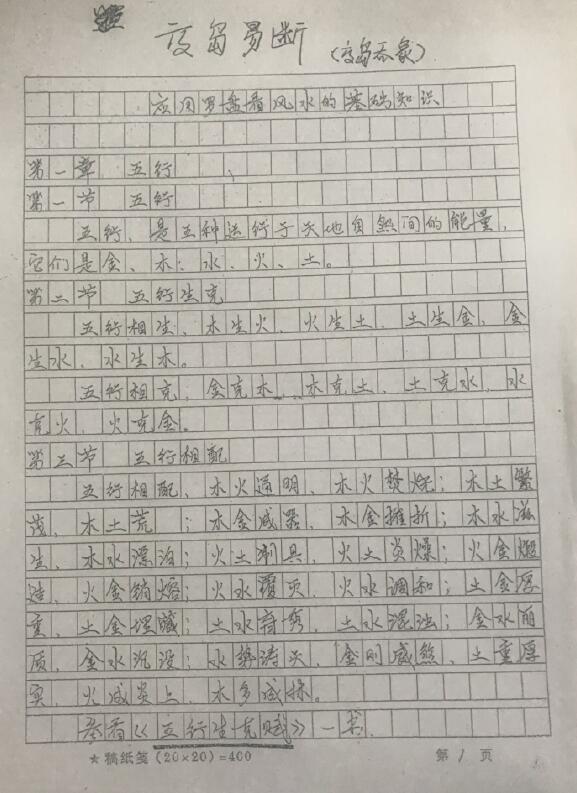 高岛易断(高岛吞象)
应用罗盘看风水的基础知识
第一章 五行
第一节 五行
五行、是五种运行于天地自然间的能量,
它们是金、木、水、火、土。
第二节 五行生克
五行相生、木生火、火生土、土生金、金
生水、水生木。
五行相克、金克木、木克土、土克水、水
克火、火克金。
第三节 五行相配
五行相配、木火通明、木火焚烧;木土繁
茂、木土荒;木金成器、木金摧折;木水滋
生、木水漂泊;火土制具、火土炎燥;火金煅
造、火金销熔;火水覆灭、火水调和;土金厚
重、土金埋藏;土水育秀、土水混浊;金水丽
质、金水沉没;水势涛天、金刚成煞、土重厚
实、火成炎上、木多成林。
参看《五行生克赋》一书.
★稿纸笺(20×20)=400
第1页